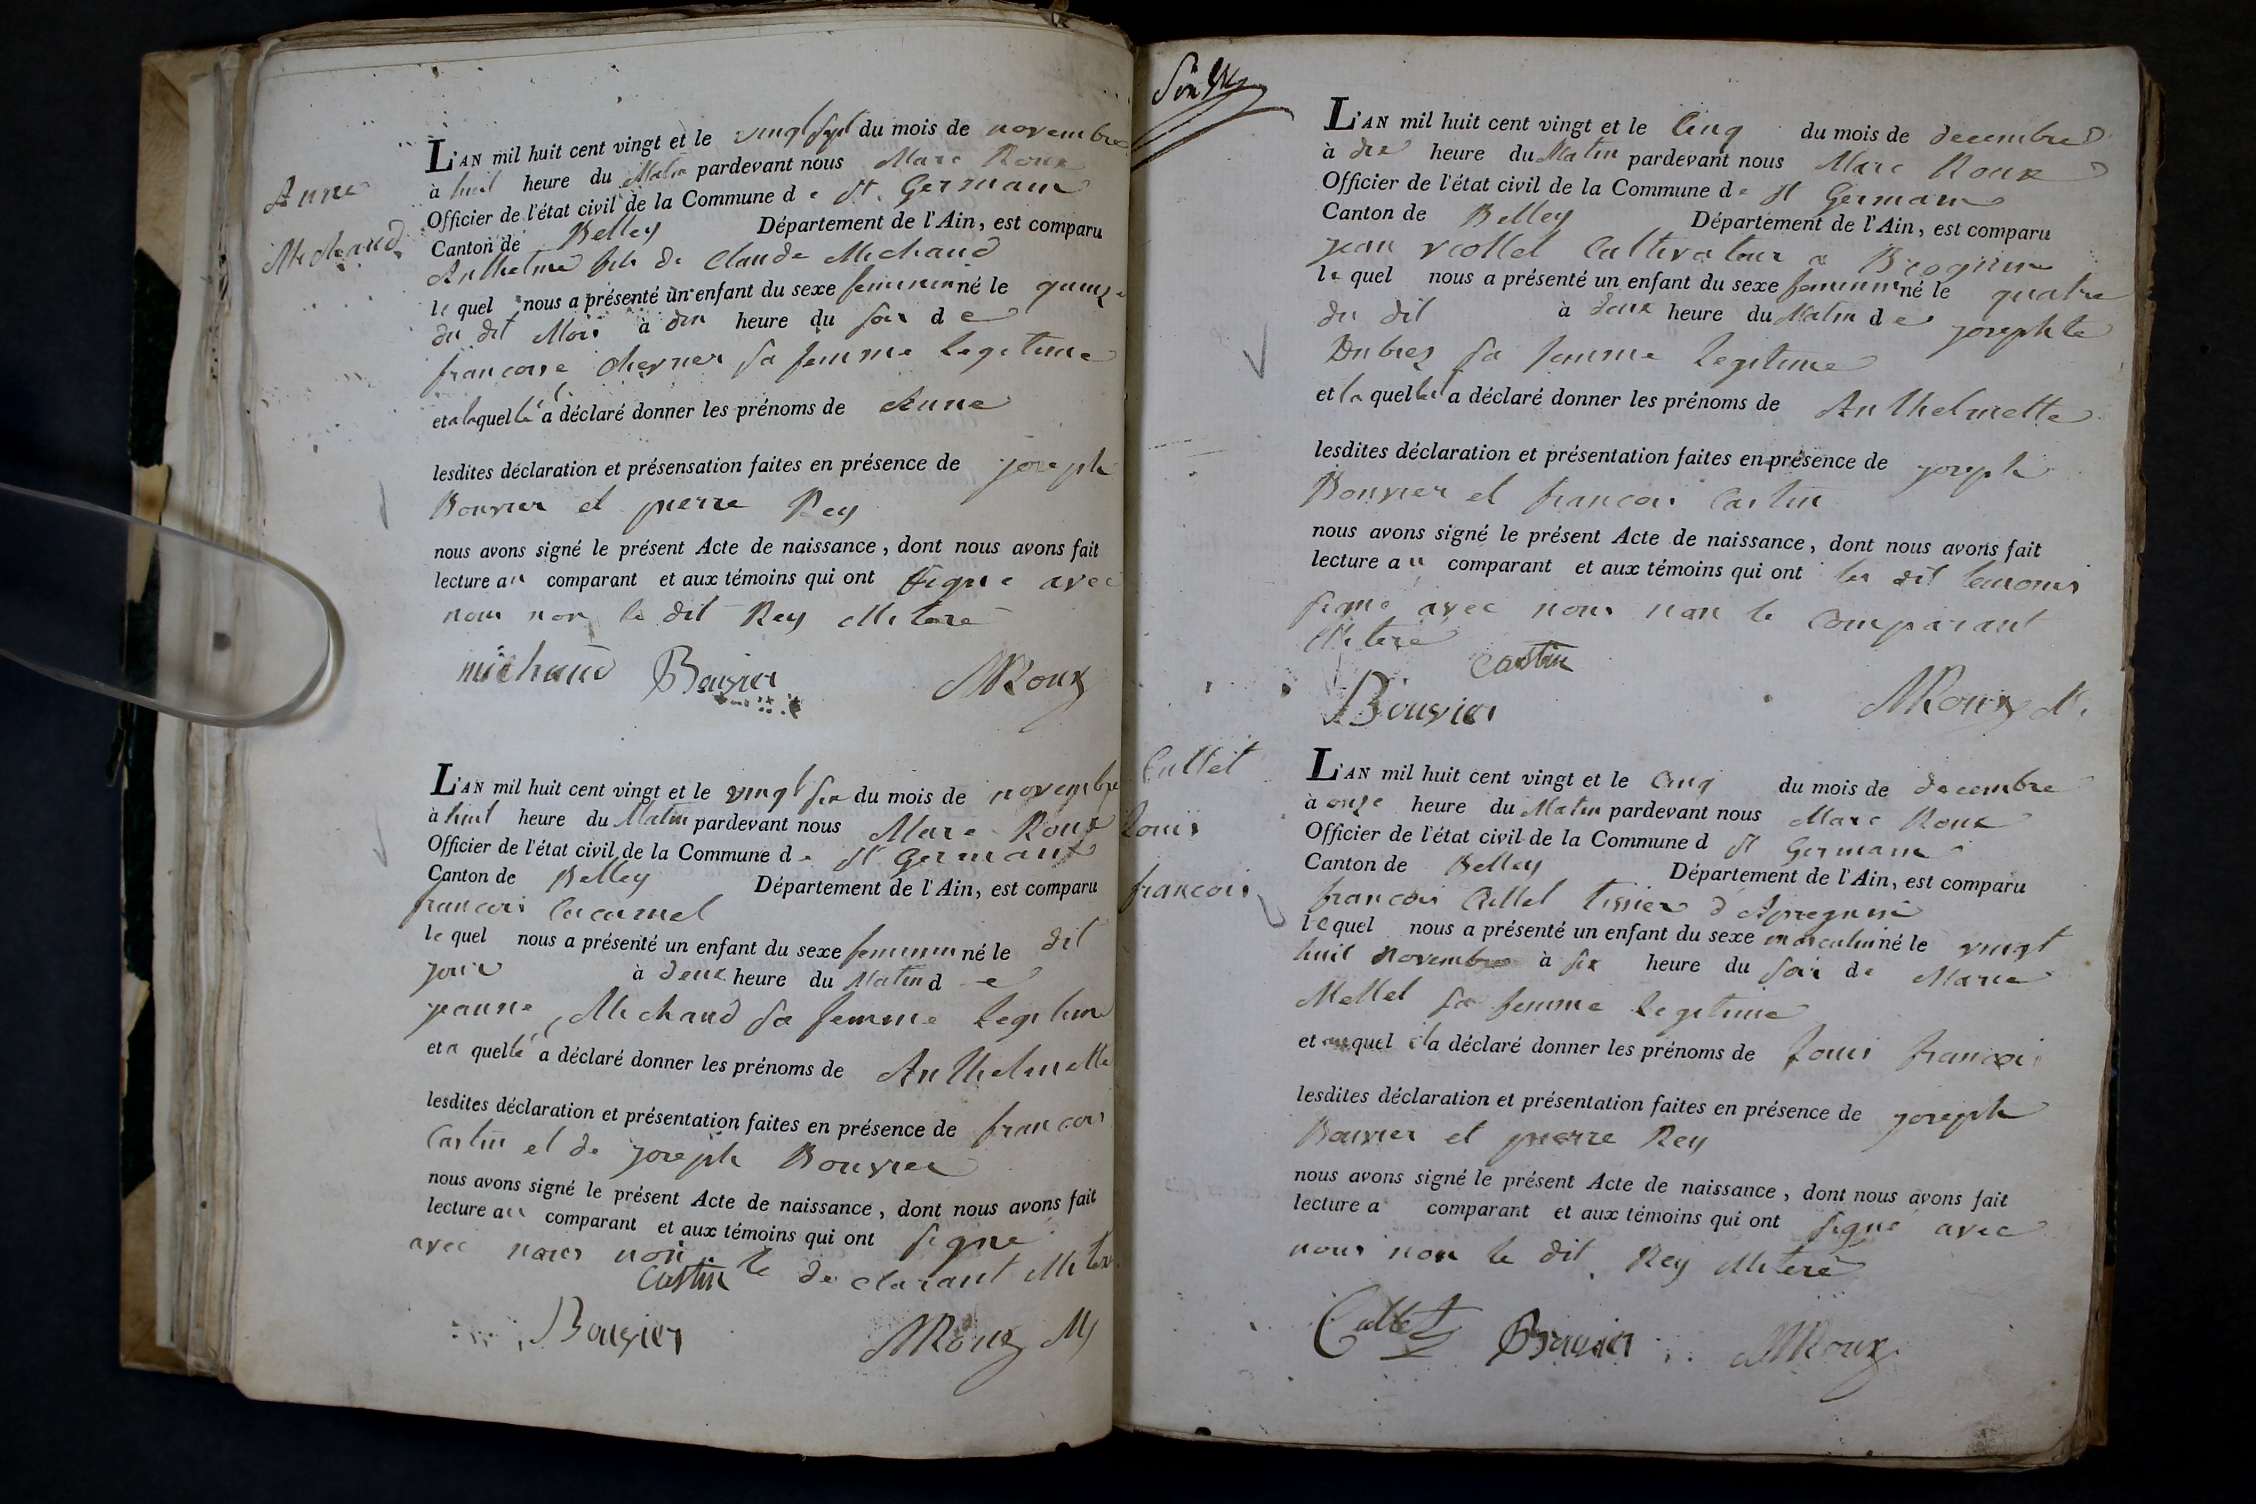 Anne
Michaud
L'AN mil huit cent vingt et le vingt sept du mois de novembre
à huit heure du Matin pardevant nous Marc Roux
Officier de l'état civil de la Commune de St. Germain
Canton de Belley Département de l'Ain, est comparu
Anthelme fils de Claude Michaud
le quel nous a présenté un enfant du sexe feminin né le quinze
du dit Mois à dix heure du soir de
francoise sa femme legitime
et a laquelle il a déclaré donner les prénoms de Anne
lesdites déclaration et présensation faites en présence de joseph
Bouvier et pierre Rey
nous avons signé le présent Acte de naissance, dont nous avons fait
lecture au comparant et aux témoins qui ont signe avec
nous non le dit Rey Miteré
michaud Bouvier MRoux
L'AN mil huit cent vingt et le vingt six du mois de novembre
à huit heure du Matin pardevant nous Marc Roux
Officier de l'état civil de la Commune de St Germain
Canton de Belley Département de l'Ain, est comparu
francois
le quel nous a présenté un enfant du sexe feminin né le dit
jour à deux heure du Matin de
jeanne Michaud sa femme legitime
et a quelle il a déclaré donner les prénoms de Anthelmette
lesdites déclaration et présentation faites en présence de francois
Castin et de joseph Bouvier
nous avons signé le présent Acte de naissance, dont nous avons fait
lecture au comparant et aux témoins qui ont signé
avec nous non le declarant
Castin
Bouvier MRoux
L'AN mil huit cent vingt et le cinq du mois de decembre
à dix heure du Matin pardevant nous Marc Roux
Officier de l'état civil de la Commune de St Germain
Canton de Belley Département de l'Ain, est comparu
jean viollet Cultivateur a
le quel nous a présenté un enfant du sexe feminin né le quatre
du dit à deux heure du Matin de josephte
Dubrez sa femme legitime
et la quelle il a déclaré donner les prénoms de Anthelmette
lesdites déclaration et présentation faites en présence de joseph
Bouvier et francois Castin
nous avons signé le présent Acte de naissance, dont nous avons fait
lecture au comparant et aux témoins qui ont les dit temoins
signé avec nous non le Comparant
Miteré
Castin
Bouvier MRoux
Cullet
Louis
francois
L'AN mil huit cent vingt et le cinq du mois de decembre
à onze heure du Matin pardevant nous Marc Roux
Officier de l'état civil de la Commune d St Germain
Canton de Belley Département de l'Ain, est comparu
francois Cullet tissier d'Apregnin
lequel nous a présenté un enfant du sexe masculin né le vingt
huit novembre à six heure du soir de Marie
Mellet sa femme legitime
et auquel il a déclaré donner les prénoms de Louis francois
lesdites déclaration et présentation faites en présence de joseph
Bouvier et pierre Rey
nous avons signé le présent Acte de naissance, dont nous avons fait
lecture a comparant et aux témoins qui ont signé avec
nous non le dit Rey Miteré
Cullet Bouvier MRoux